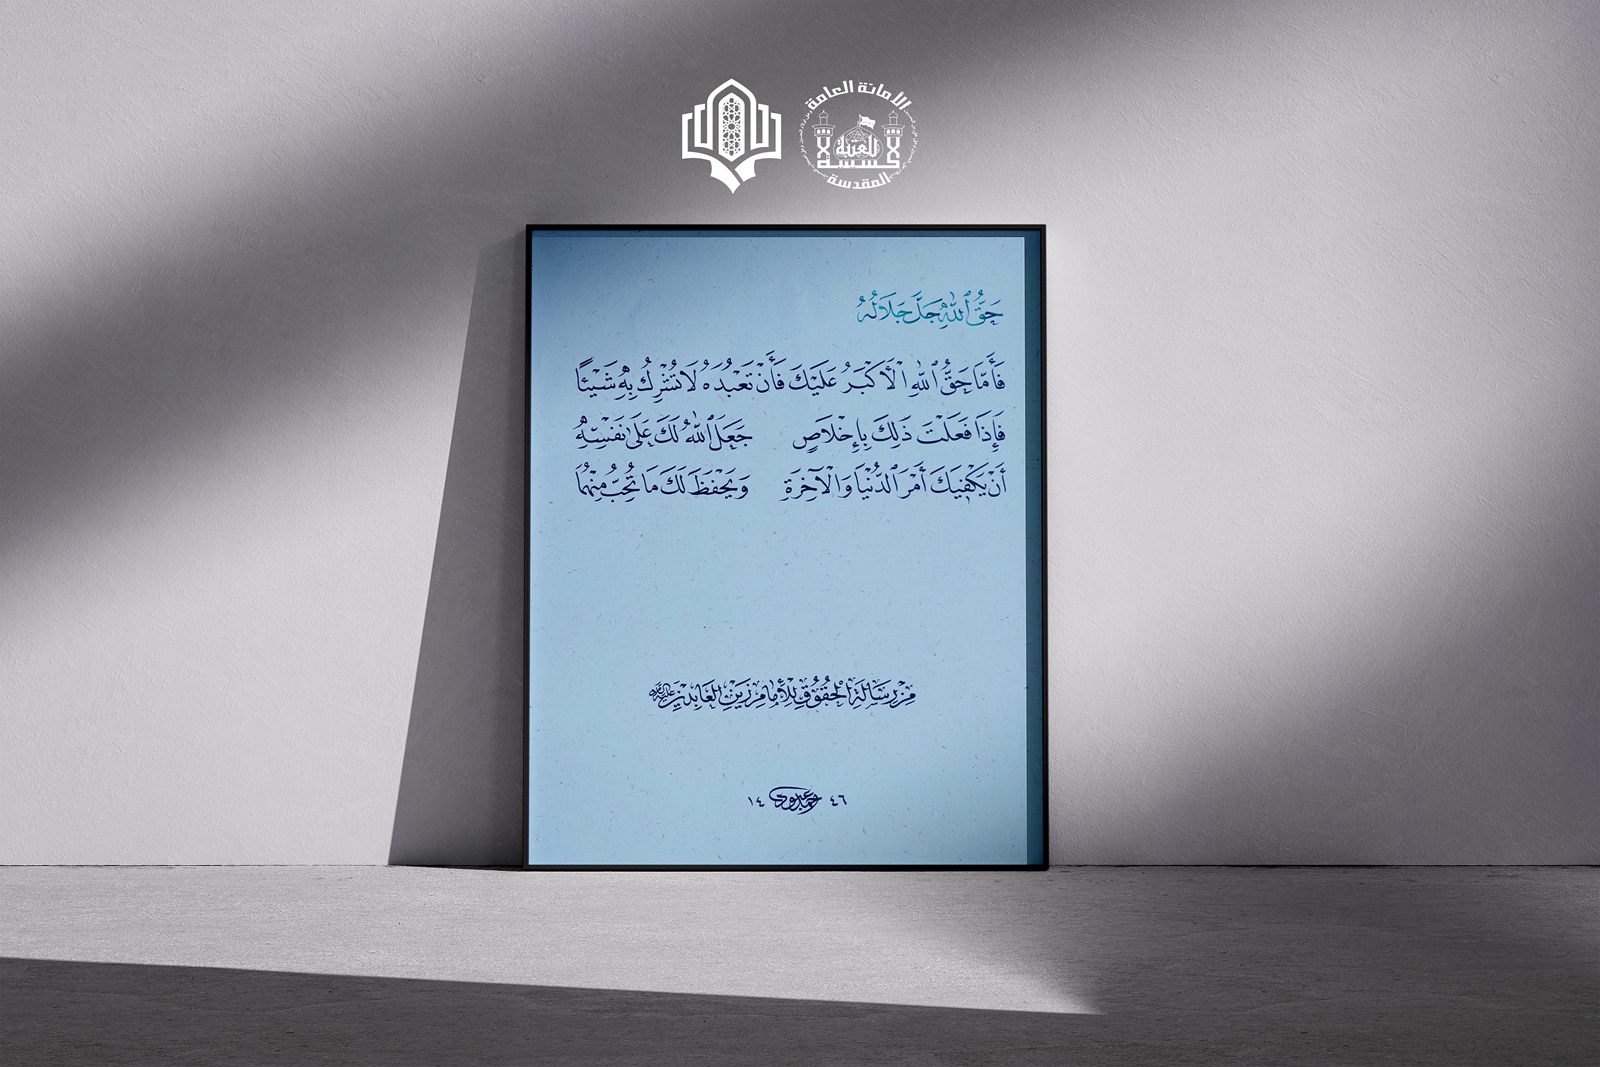 الأمانة العامة
للعتبة
المقدسة
حَقُّ ٱللَّهِ جَلَّ جَلَالُهُ
فَأَمَّا حَقُّ ٱللَّهِ الْأَكْبَرُ عَلَيْكَ فَأَنْ تَعْبُدَهُ لَا تُشْرِكُ بِهِ شَيْئًا
فَإِذَا فَعَلْتَ ذَلِكَ بِإِخْلَاصٍ جَعَلَ ٱللَّهُ لَكَ عَلَى نَفْسِهِ
أَنْ يَكْفِيَكَ أَمْرَ ٱلدُّنْيَا وَالْآخِرَةِ وَيَحْفَظَ لَكَ مَا تُحِبُّ مِنْهُمَا
مِنْ رِسَالَةِ الْحُقُوقِ لِلْأِمَامِ زَيْنِ الْعَابِدِينَ عليه السلام
١٤ ٤٦